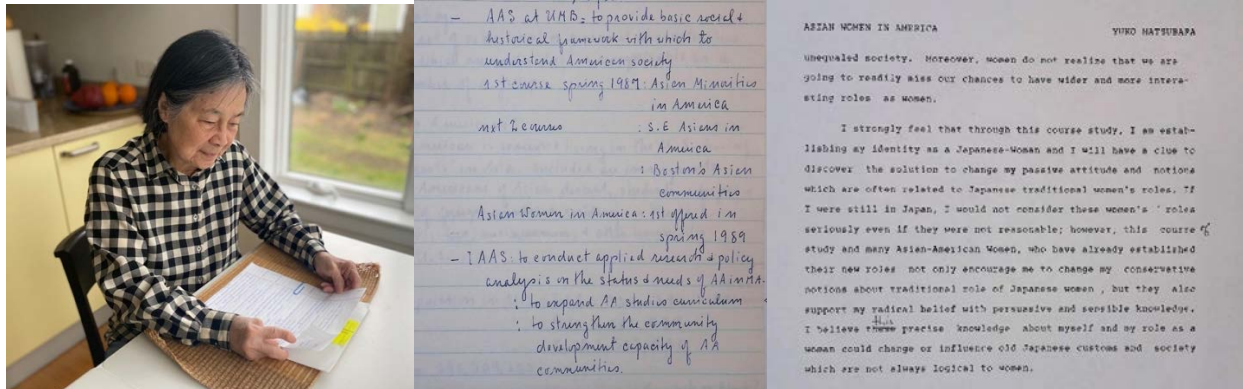 - AAS at UMB: to provide basic social &
historical framework with which to
understand American society
1st course spring 1987: Asian Minorities
in America
next 2 courses : S.E Asians in
America
: Boston's Asian
communities
Asian Women in America: 1st offered in
spring 1989
- IAAS: to conduct applied research & policy
analysis on the status & needs of AA in MA.
: to expand AA studies curriculum
: to strengthen the community
development capacity of AA
communities.
ASIAN WOMEN IN AMERICA YUKO MATSUBARA
unequaled society. Moreover, women do not realize that we are
going to readily miss our chances to have wider and more intere-
sting roles as women.
I strongly feel that through this course study, I am estab-
lishing my identity as a Japanese-Woman and I will have a clue to
discover the solution to change my passive attitude and notions
which are often related to Japanese traditional women's roles. If
I were still in Japan, I would not consider these women's ' roles
seriously even if they were not reasonable; however, this course of
study and many Asian-American Women, who have already established
their new roles not only encourage me to change my conservative
notions about traditional role of Japanese women , but they also
support my radical belief with persuasive and sensible knowledge.
this
I believe these precise knowledge about myself and my role as a
woman could change or influence old Japanese customs and society
which are not always logical to women.